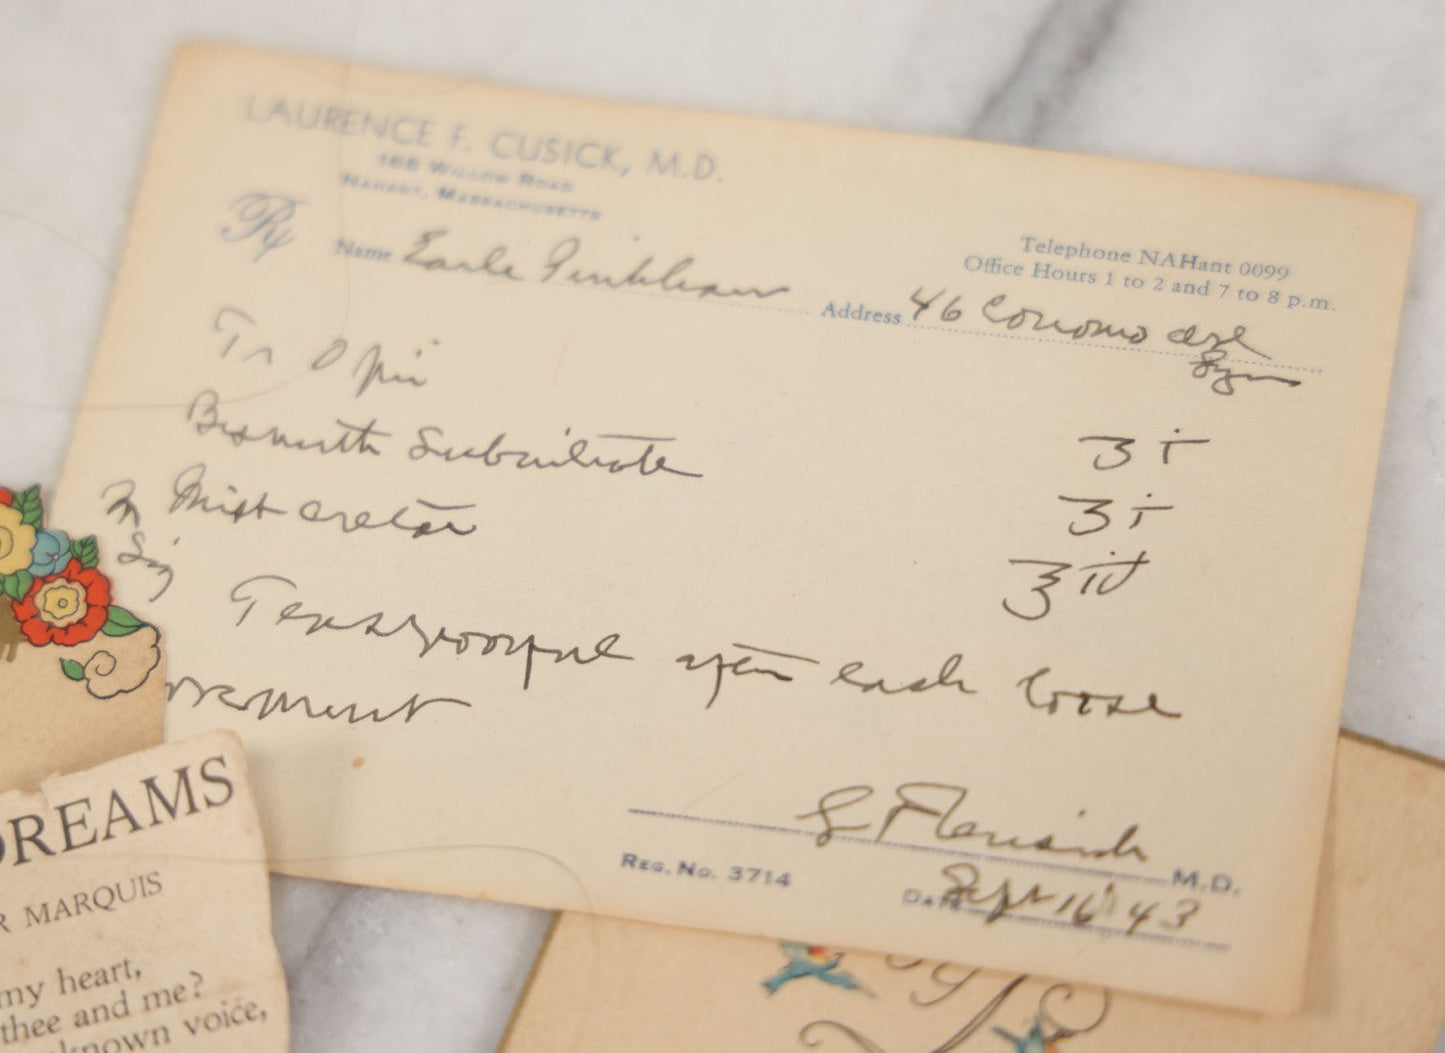 LAURENCE F. CUSICK, M.D.
168 WILLOW ROAD
NAHANT, MASSACHUSETTS
Telephone NAHant 0099
Office Hours 1 to 2 and 7 to 8 p.m.
Rx Name Earle Address 46 Conomo ave
Lynn
Tr Opii ʒ i
Bismuth Subnitrate ʒ i
Mist cretae ℥ iii
Sig
Teaspoonful after each loose
movement
M.D.
REG. No. 3714
DATE Sept 16 43
DREAMS
R MARQUIS
my heart,
thee and me?
known voice,